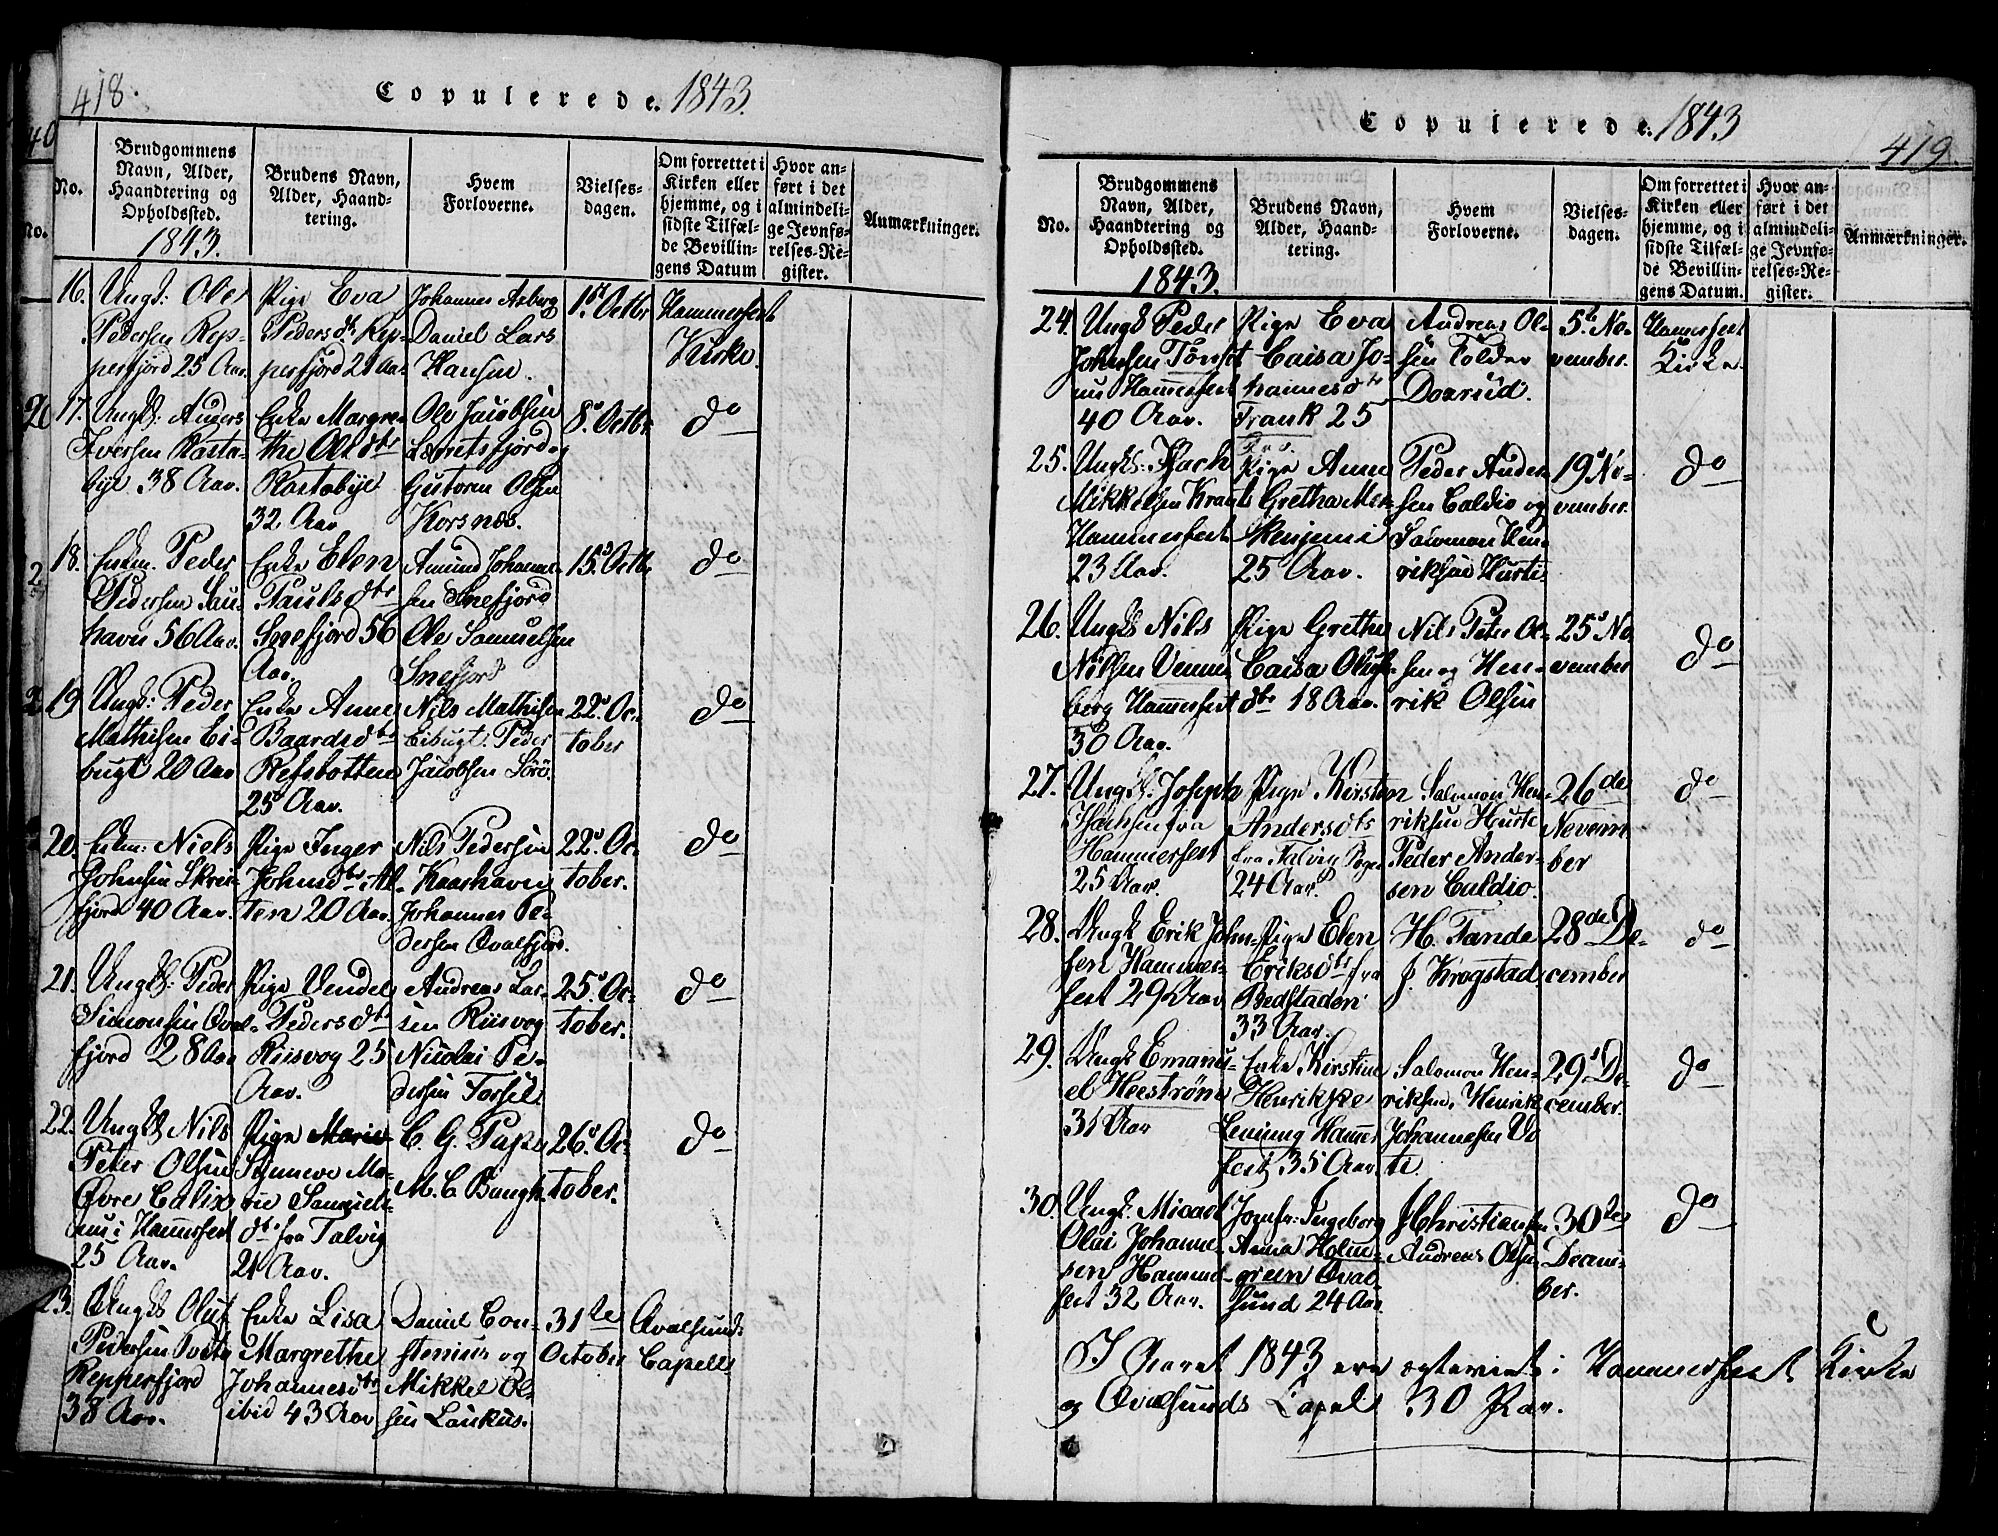 418.
Copulerede. 1843.
No.
Brudgommens
Navn, Alder,
Haandtering og
Opholdssted.
1843.
Brudens Navn,
Alder, Haand-
tering.
Hvem
Forloverne.
Vielses-
dagen.
Om forrettet i
Kirken eller
hjemme, og i
sidste Tilfæl-
de Bevillin-
gens Datum
Hvor an-
ført i det
almindeli-
ge Jevnfø-
relses-Re-
gister.
Anmærkninger.
16.
Ungk: Oles
Pedersen Rep-
perfjord 25 Aar.
Pige Eva
Pedersdtr Rep-
perfjord 21 Aar
Johannes Asberg
Daniel Lars
Hansen.
1st. Octbr
Hammerfest
Kirke.
17.
Ungk: Anders
Iversen Rasta-
bye 38 Aar.
Enke Margre-
the Olsdtr
Rastabye
32 Aar
Ole Jacobsen
Leeretsfjord og
Gutorm Olsen
Korsnæs.
8de Octbr.
do
18.
Enkm. Peder
Pedersen Sau-
havn 56 Aar.
Enke Elen
Paulsdtr
Snefjord 56
Aar.
Amund Johanne-
sen Snefjord
Ole Samuelsen
Snefjord
15d. Octbr
do
19
Ungk: Peder
Mathisen Ei-
bugt 20 Aar
Enke Anne
Baardsdtr
Refsbotten
25 Aar.
Nils Mathisen
Eibugt. Peder
Jacobsen Sørø.
22d. Oc-
tober
do
20.
Enkm: Niels
Johnsen Skrei-
fjord 40 Aar.
Pige Inger
Johnsdtr Al-
ten 20 Aar.
Nils Pedersen
Kaarhavn
Johannes Pe-
dersen Qvalfjord.
22d. Oc-
tober.
do
21.
Ungk: Peder
Simonsen Qval-
fjord 28 Aar
Pige Vendel
Pedersdtr
Riisvog 25
Aar.
Andreas Lar-
sen Riisvog
Nicolai Pe-
dersen Forsöl.
25d. Oc-
tober.
do
22.
Ungk Nils
Peter Olsen
Övre Calix
nu i Hammerfest
25 Aar.
Pige Marie
Synneve Ma-
rie Samuels-
dtr fra Talvig
21 Aar.
C. G. Pape
M. C. Bangh.
26d. Oc-
tober.
do
23.
Ungk Oluf
Pedersen Tveta
Repperfjord
38 Aar.
Enke Lisa
Margrethe
Johannesdtr
ibid 43 Aar
Daniel Con-
stenius og
Mikkel Ol-
sen Laukus.
31te
October
Qvalsunds
Capell
Copulerede. 1843
419.
No.
Brudgommens
Navn, Alder,
Haandtering og
Opholdssted.
1843.
Brudens Navn,
Alder, Haand-
tering.
Hvem
Forloverne.
Vielses-
dagen.
Om forrettet i
Kirken eller
hjemme, og i
sidste Tilfæl-
de Bevillin-
gens Datum.
Hvor an-
ført i det
almindeli-
ge Jevnfø-
relses-Re-
gister.
Anmærkninger.
24.
Ungk Peder
Johnsen Tönset
nu Hammerfest
40 Aar.
Pige Eva
Caisa Jo-
hannesdtr
Frank 25
Aar.
Andreas Ol-
sen Tolder
Daarud.
5te No-
vember.
Hammerfest
Kirke.
25.
Ungk: Isach
Mikkelsen
Hammerfest
23 Aar.
Pige Anne
Gretha
25 Aar.
Peder Ander-
sen Caldio og
Salomon Hen-
riksen Hurti-
19d No-
vember.
do
26.
Ungk Nils
Nilsen Venne-
berg Hammerfest
30 Aar.
Pige Grethe
Caisa Olufs-
dtr 18 Aar.
Nils Peter Ol-
sen og Hen-
rik Olsen
25d No-
vember
do
27.
Ungk: Joseph
Isachsen fra
Hammerfest
25 Aar.
Pige Kirsten
Andersdtr
fra Talvig
24 Aar.
Salomon Hen-
riksen Hurti
Peder Ander-
sen Culdio.
26de
Novem-
ber
do
28.
Ungk Erik John-
sen Hammer-
fest 29 Aar
Pige Elen
Eriksdtr fra
Bedstaden
33 Aar.
H. Tande
J. Krogstad
28de De-
cember
do
29.
Ungk Emanu-
el Heeström
31 Aar
Enke Kirstine
Henrikke
Lening Hammer-
fest, 35 Aar
Salomon Hen-
riksen, Henrik
Johannesen Ur
ti.
29d De-
cember.
do
30.
Ungk. Micael
Olai Johanne-
sen Hammer-
fest 32 Aar.
Jomfr: Ingeborg
Anna Holm-
green Qval-
sund 24 Aar
J Christiansen
Andreas Olsen
30te
Decem-
ber.
do
I Aaret 1843 ere egteviet i Hammerfest Kirke
og Qvalsunds Capel 30 Par.